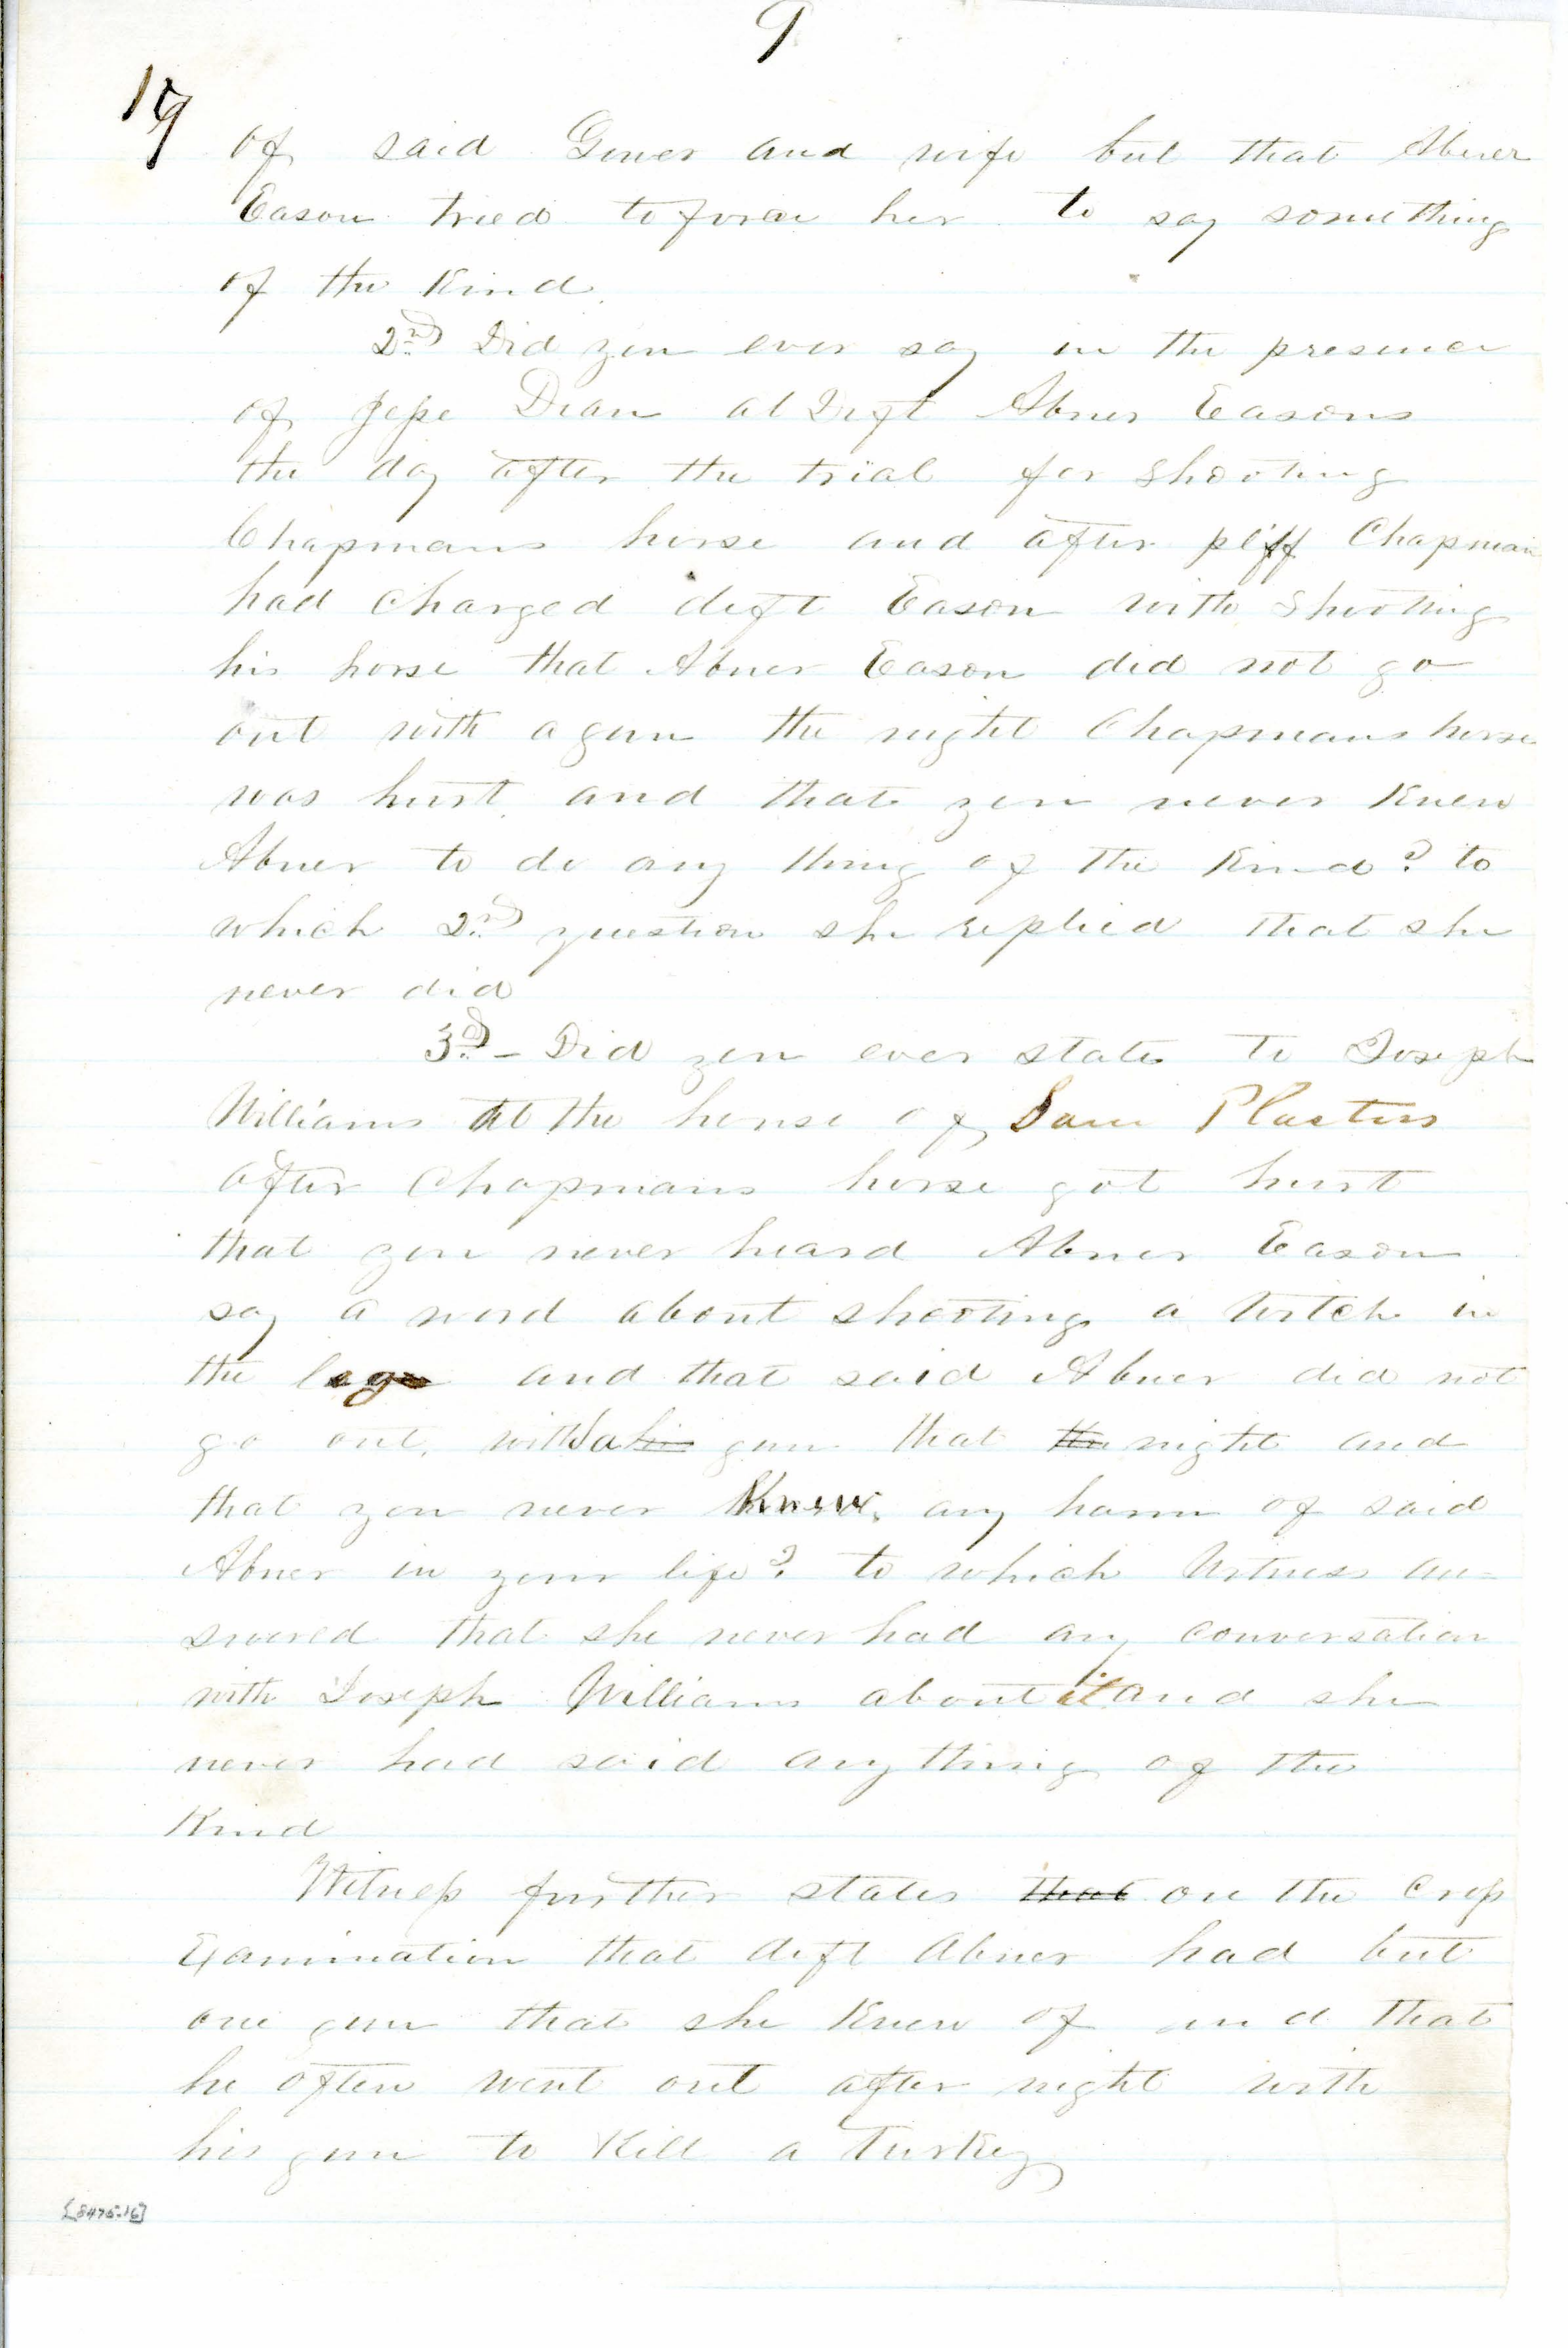 9
of said Gower and wife but that Abner
Eason tried to force her to say something
of the Kind.
2nd Did you ever say in the presence
of Jesse Dean at Deft Abner Easons
the day after the trial for shooting
Chapmans horse and after plff Chapman
had charged deft Eason with shooting
his horse that Abner Eason did not go
out with a gun the night Chapmans horse
was hurt and that you never Knew
Abner to do any thing of the Kind? to
which 2nd question she replied that she
never did
3d – Did you ever state to Joseph
Williams at the house of Sam Plasters
after Chapmans horse got hurt
that you never heard Abner Eason
say a word about shooting a witch in
the leg and that said Abner did not
go out with a his gun that the night and
that you never Knew any harm of said
Abner in your life? to which Witness an=
swered that she never had any conversation
with Joseph Williams about it and she
never had said any thing of the
Kind
Witness further states that on the Cross
Examination that deft Abner had but
one gun that she Knew of and that
he often went out after night with
his gun to Kill a Turkey
[8476-16]